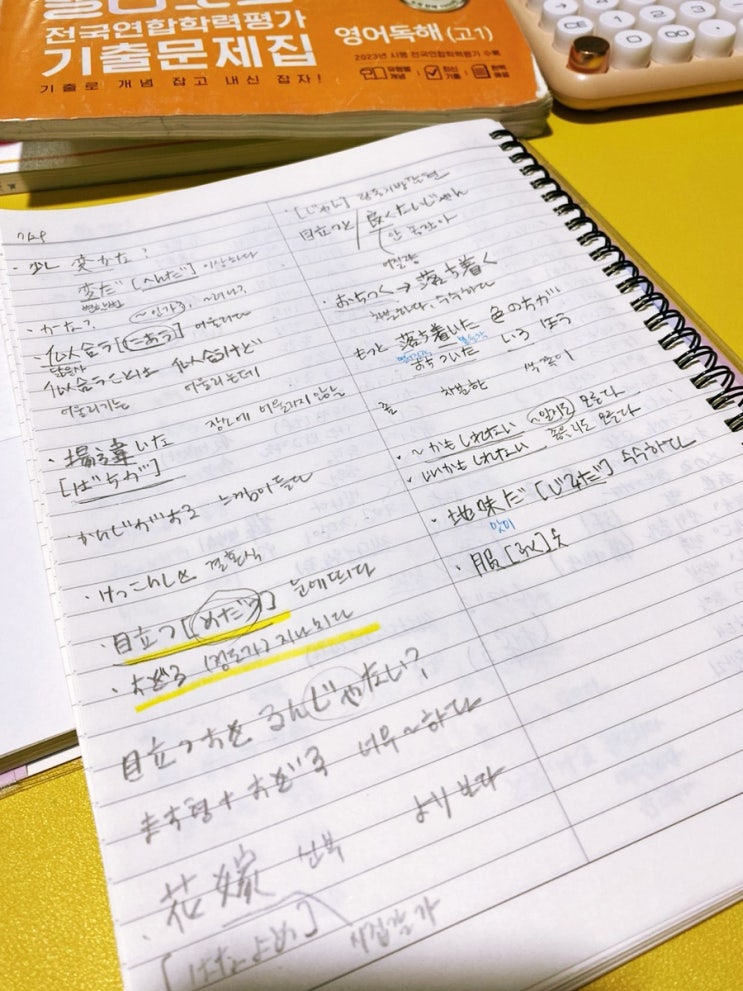 전국연합학력평가
기출문제집
영어독해(고1)
2023년 시행 전국연합학력평가 수록
기출로 개념 잡고 내신 잡자!
7/29
· 少し 変かな?
変だ [へんだ] 이상하다
· かな? ~인가, ~려나?
· 似合う[にあう] 어울리다
닮은사
似合うことは 似合うけど
어울리기는 어울리는데
장소에 어울리지 않는
· 場違いた
[ばちが]
かんじがする 느낌이 들다
· けっこんしき 결혼식
· 目立つ [めだつ] 눈에띄다
· すぎる (정도가) 지나치다
目立つすぎるんじゃない?
ます형+すぎる 너무~하다
より 보다
· 花嫁 신부
[はなよめ]
시집갈 가
· [じゃん]
目立つと 良くないじゃん
안 좋잖아
· おちつく → 落ち着く
차분하다, 수수하다
もっと 落ち着いた 色のほうが
おちついた いろ ほう
좀 차분한 색 쪽이
· ~かもしれない ~일지도 모른다
· いいかもしれない 좋을지도 모른다
· 地味だ [じみだ] 수수하다
맛미
· 服 [ふく] 옷